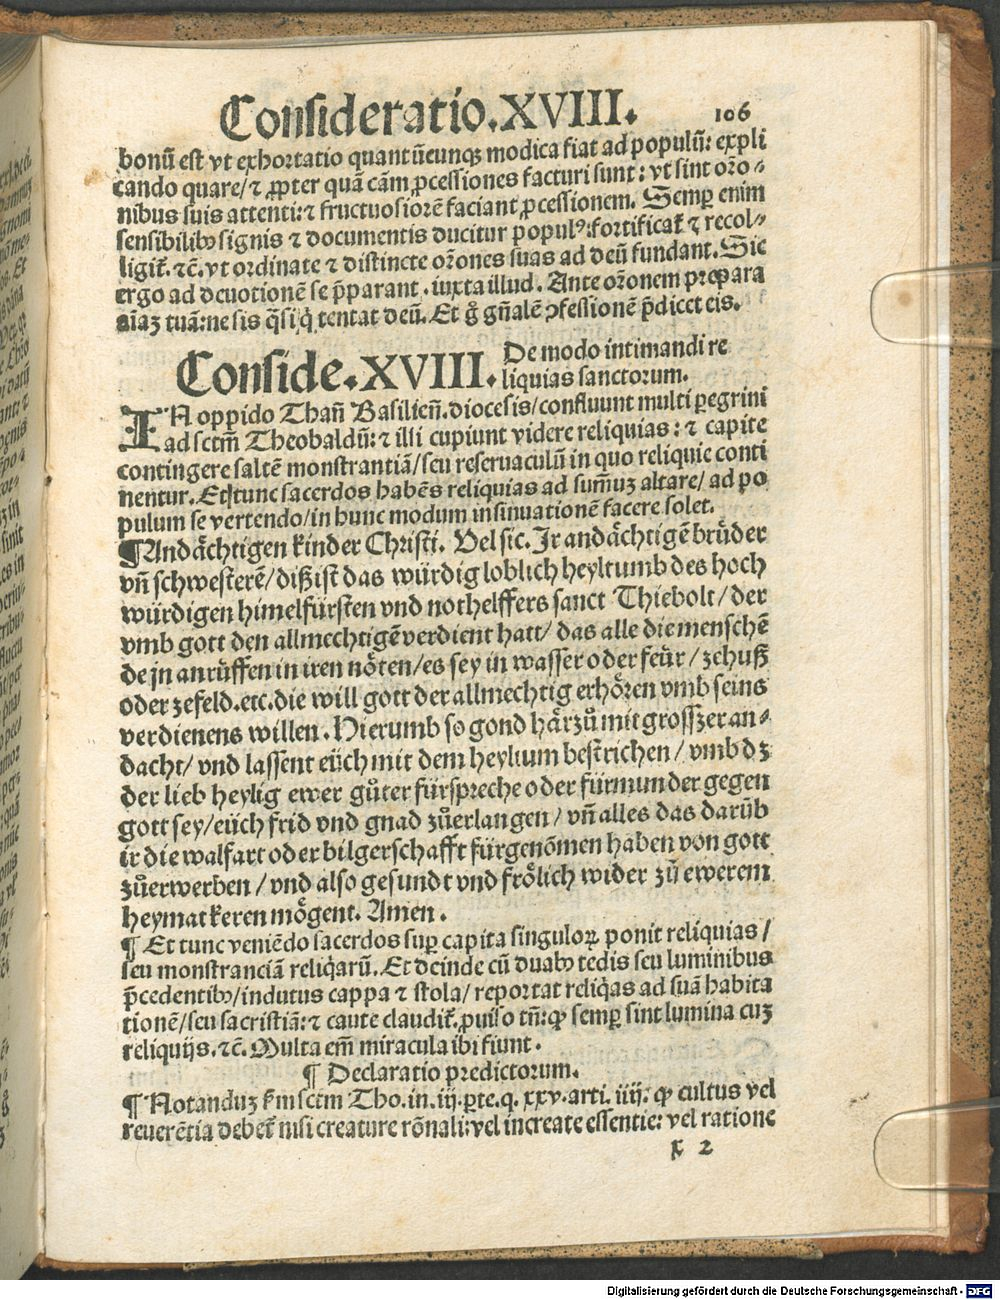 Consideratio.XVIII. 106
bonū est vt exhortatio quantūcunqȝ modica fiat ad populū: expli
cando quare/ ⁊ ꝓpter quā cām ꝓcessiones facturi sunt: vt sint oro⸗
nibus suis attenti:⁊ fructuosiorē faciant ꝓcessionem. Semꝑ enim
sensibilibꝫ signis ⁊ documentis ducitur populꝰ:fortificat̄ ⁊ recol⸗
ligit̄. ⁊c̄.vt ordinate ⁊ distincte or̄ones suas ad deū fundant. Sic
ergo ad deuotionē se p̄parant . iuxta illud. Ante or̄onem prepara
aīaȝ tuā:ne sis q̄si q̇ tentat deū. Et g̊ gn̄alē ꝯfessionē p̄dicet eis.
Conside.XVIII. De modo intimandi re
liquias sanctorum.
IN oppido Than̄ Basilien̄.diocesis/confluunt multi peregrini
ad sctm̄ Theobaldū:⁊ illi cupiunt videre reliquias : ⁊ capite
contingere saltē monstrantiā/seu reseruaculū in quo reliquie conti
nentur. Et tunc sacerdos habēs reliquias ad sum̄uȝ altare/ ad po
pulum se vertendo/in hunc modum insinuationē facere solet.
¶Andächtigen kinder Christi. Vel sic. Jr andächtigē brüder
vn̄ schwesterē/diß ist das würdig loblich heyltumb des hoch
würdigen himelfürsten vnd nothelffers sanct Thiebolt/ der
vmb gott den allmechtigē verdient hatt/ das alle die menschē
de jn anrüffen in iren nöten/es sey in wasser oder feür/ zehuß
oder zefeld.etc.die will gott der allmechtig erhören vmb seins
verdienens willen . Hierumb so gond härzů mit grosszer an⸗
dacht/ vnd lassent eüch mit dem heyltum bestrichen / vmb dȝ
der lieb heylig ewer gůter fürspreche oder fürmunder gegen
gott sey/eüch frid vnd gnad zůerlangen / vn̄ alles das darüb
ir die walfart oder bilgerschafft fürgenōmen haben von gott
zůerwerben / vnd also gesundt vnd frölich wider zů ewerem
heymat keren mögent. Amen .
¶ Et tunc veniēdo sacerdos suꝑ capita singuloꝝ ponit reliquias /
seu monstranciā reliq̇arū. Et deinde cū duabꝫ tedis seu luminibus
p̄cedentibꝫ/indutus cappa ⁊ stola/ reportat reliq̇as ad suā habita
tionē/seu sacristiā:⁊ caute claudit̄.ꝓuiso tn̄:ꝙ semꝑ sint lumina cuȝ
reliquijs.⁊c̄. Multa em̄ miracula ibi fiunt .
¶ Declaratio predictorum.
¶ Notanduȝ ẜm sctm̄ Tho.in.iij.ꝑte.q. xxv.arti. iiij. ꝙ cultus vel
reuerētia debet̄ nisi creature rōnali:vel increate essentie: vel ratione
x 2
Digitalisierung gefördert durch die Deutsche Forschungsgemeinschaft - DFG